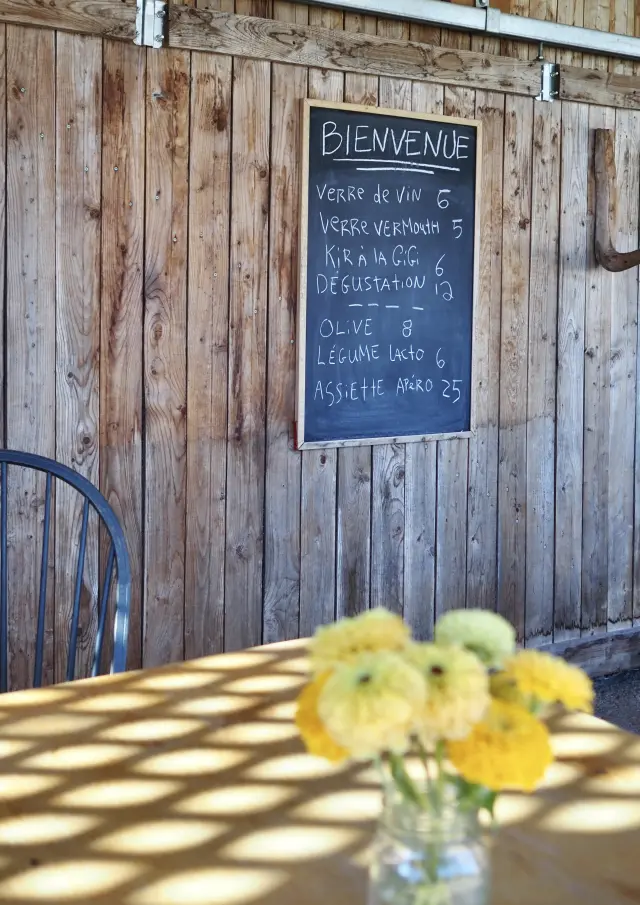 BIENVENUE
VERRE de VIN 6
VERRE VERMOUTH 5
KIR À LA GIGI 6
DÉGUSTATION 12
OLIVE 8
LÉGUME LACTO 6
ASSIETTE APÉRO 25